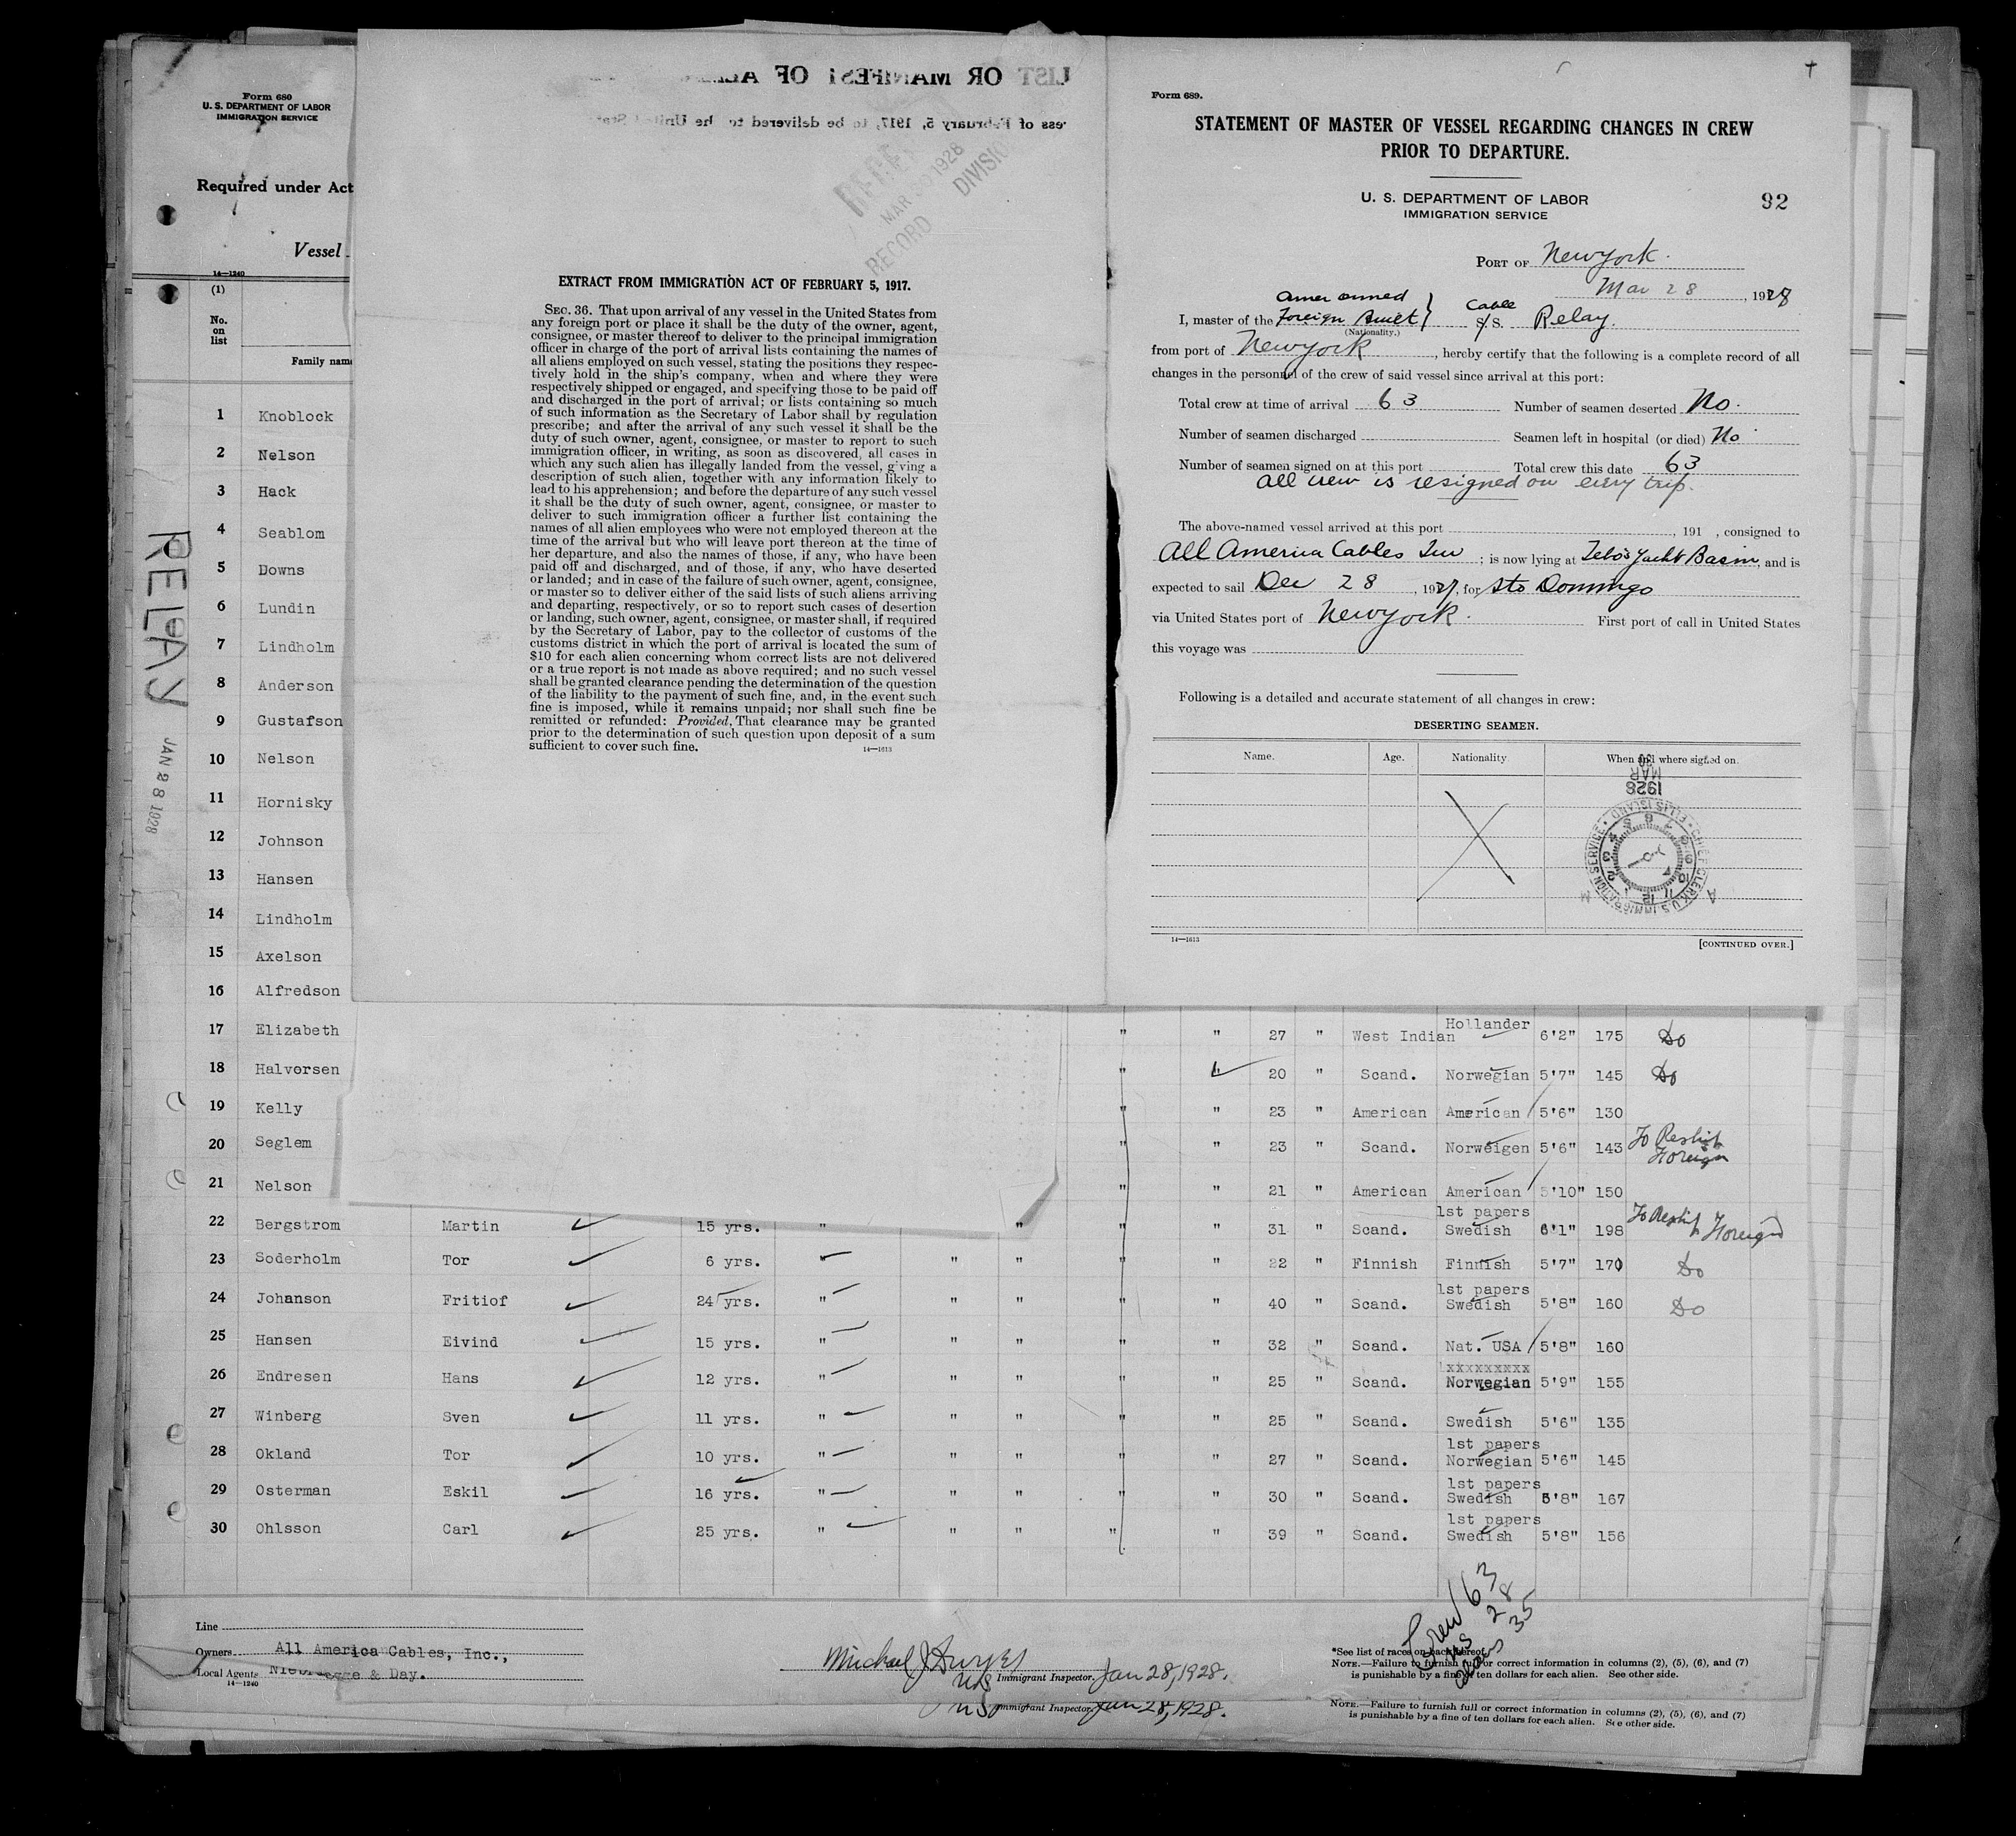 Form 680
U. S. DEPARTMENT OF LABOR
IMMIGRATION SERVICE
Required under Act
Vessel
14—1240
(1)
No.
on
list
Family name
1 Knoblock
2 Nelson
3 Hack
4 Seablom
5 Downs
6 Lundin
7 Lindholm
8 Anderson
9 Gustafson
10 Nelson
11 Hornisky
12 Johnson
13 Hansen
14 Lindholm
15 Axelson
16 Alfredson
RELAY
JAN 28 1928
LIST OR MANIFEST OF
ess of February 5, 1917, to be delivered to the United Stat
MAR 1928
RECORD DIVISIO
EXTRACT FROM IMMIGRATION ACT OF FEBRUARY 5, 1917.
SEC. 36. That upon arrival of any vessel in the United States from
any foreign port or place it shall be the duty of the owner, agent,
consignee, or master thereof to deliver to the principal immigration
officer in charge of the port of arrival lists containing the names of
all aliens employed on such vessel, stating the positions they respec-
tively hold in the ship's company, when and where they were
respectively shipped or engaged, and specifying those to be paid off
and discharged in the port of arrival; or lists containing so much
of such information as the Secretary of Labor shall by regulation
prescribe; and after the arrival of any such vessel it shall be the
duty of such owner, agent, consignee, or master to report to such
immigration officer, in writing, as soon as discovered, all cases in
which any such alien has illegally landed from the vessel, giving a
description of such alien, together with any information likely to
lead to his apprehension; and before the departure of any such vessel
it shall be the duty of such owner, agent, consignee, or master to
deliver to such immigration officer a further list containing the
names of all alien employees who were not employed thereon at the
time of the arrival but who will leave port thereon at the time of
her departure, and also the names of those, if any, who have been
paid off and discharged, and of those, if any, who have deserted
or landed; and in case of the failure of such owner, agent, consignee,
or master so to deliver either of the said lists of such aliens arriving
and departing, respectively, or so to report such cases of desertion
or landing, such owner, agent, consignee, or master shall, if required
by the Secretary of Labor, pay to the collector of customs of the
customs district in which the port of arrival is located the sum of
$10 for each alien concerning whom correct lists are not delivered
or a true report is not made as above required; and no such vessel
shall be granted clearance pending the determination of the question
of the liability to the payment of such fine, and, in the event such
fine is imposed, while it remains unpaid; nor shall such fine be
remitted or refunded: Provided, That clearance may be granted
prior to the determination of such question upon deposit of a sum
sufficient to cover such fine.
14—1613
Form 689.
STATEMENT OF MASTER OF VESSEL REGARDING CHANGES IN CREW
PRIOR TO DEPARTURE.
U. S. DEPARTMENT OF LABOR
IMMIGRATION SERVICE
92
PORT OF New York.
Mar 28, 1928
Amer owned
I, master of the Foreign Built } Cable S/S. Relay.
(Nationality.)
from port of New York, hereby certify that the following is a complete record of all
changes in the personnel of the crew of said vessel since arrival at this port:
Total crew at time of arrival 63 Number of seamen deserted No.
Number of seamen discharged Seamen left in hospital (or died) No
Number of seamen signed on at this port Total crew this date 63
All crew is resigned on every trip.
The above-named vessel arrived at this port , 191 , consigned to
All America Cables Inc ; is now lying at Tebo's Yacht Basin, and is
expected to sail Dec 28, 1927, for Sto Domingo
via United States port of New York. First port of call in United States
this voyage was
Following is a detailed and accurate statement of all changes in crew:
DESERTING SEAMEN.
Name. Age. Nationality. When and where signed on.
30 MAR 1928
CHIEF CLERK U.S. IMMIGRATION SERVICE • ELLIS ISLAND •
14—1613
[CONTINUED OVER.]
17 Elizabeth " " 27 " West Indian Hollander 6'2" 175 Do
18 Halvorsen " " 20 " Scand. Norwegian 5'7" 145 Do
19 Kelly " " 23 " American American 5'6" 130
20 Seglem " " 23 " Scand. Norweigen 5'6" 143 To Reship Foreign
21 Nelson " " 21 " American American 5'10" 150
22 Bergstrom Martin 15 yrs. " " " " 31 " Scand. 1st papers Swedish 6'1" 198 To Reship Foreign
23 Soderholm Tor 6 yrs. " " " " " 22 " Finnish Finnish 5'7" 170 Do
24 Johanson Fritiof 24 yrs. " " " " " 40 " Scand. 1st papers Swedish 5'8" 160 Do
25 Hansen Eivind 15 yrs. " " " " " 32 " Scand. Nat. USA 5'8" 160
26 Endresen Hans 12 yrs. " " " " " 25 " Scand. 1xxxxxxxxx Norwegian 5'9" 155
27 Winberg Sven 11 yrs. " " " " " 25 " Scand. Swedish 5'6" 135
28 Okland Tor 10 yrs. " " " " " 27 " Scand. 1st papers Norwegian 5'6" 145
29 Osterman Eskil 16 yrs. " " " " " 30 " Scand. 1st papers Swedish 5'8" 167
30 Ohlsson Carl 25 yrs. " " " " " 39 " Scand. 1st papers Swedish 5'8" 156
Crew 63
US 28
aliens 35
Line
Owners All America Cables, Inc.,
Local Agents & Day.
14—1240
Michael J
US Immigrant Inspector. Jan 28, 1928.
US Immigrant Inspector. Jan 28, 1928.
*See list of races on back hereof.
NOTE.—Failure to furnish full or correct information in columns (2), (5), (6), and (7)
is punishable by a fine of ten dollars for each alien. See other side.
NOTE.—Failure to furnish full or correct information in columns (2), (5), (6), and (7)
is punishable by a fine of ten dollars for each alien. See other side.